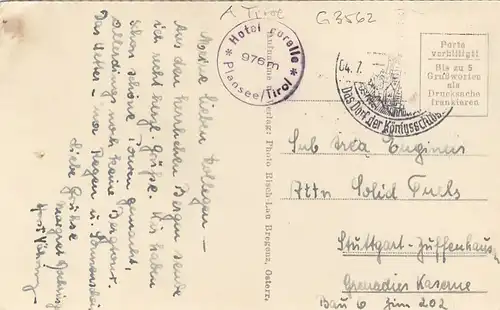 Tirol
G3562
* Hotel Forelle *
976m
Plansee/Tirol
04. 7.
Das Dorf der Königsschlös
Porto
vorbiltigt
Bis zu 5
Grußworten
als
Drucksache
frankieren
Verlag: Photo Risch-Lau Bregenz, Österr.
Meine lieben Kollegen –
Aus den herrlichen Bergen sende
ich recht herzl. Grüße. Wir haben
schon schöne Touren gemacht,
allerdings noch keine Bergtour.
Das Wetter – nur Regen u. Sonnenschein
Liebe Grüsse
Margret
Sub Area Engineer
Attn Solid Fuels
Stuttgart-Zuffenhausen
Grenadier Kaserne
Bau 6 Zim 202